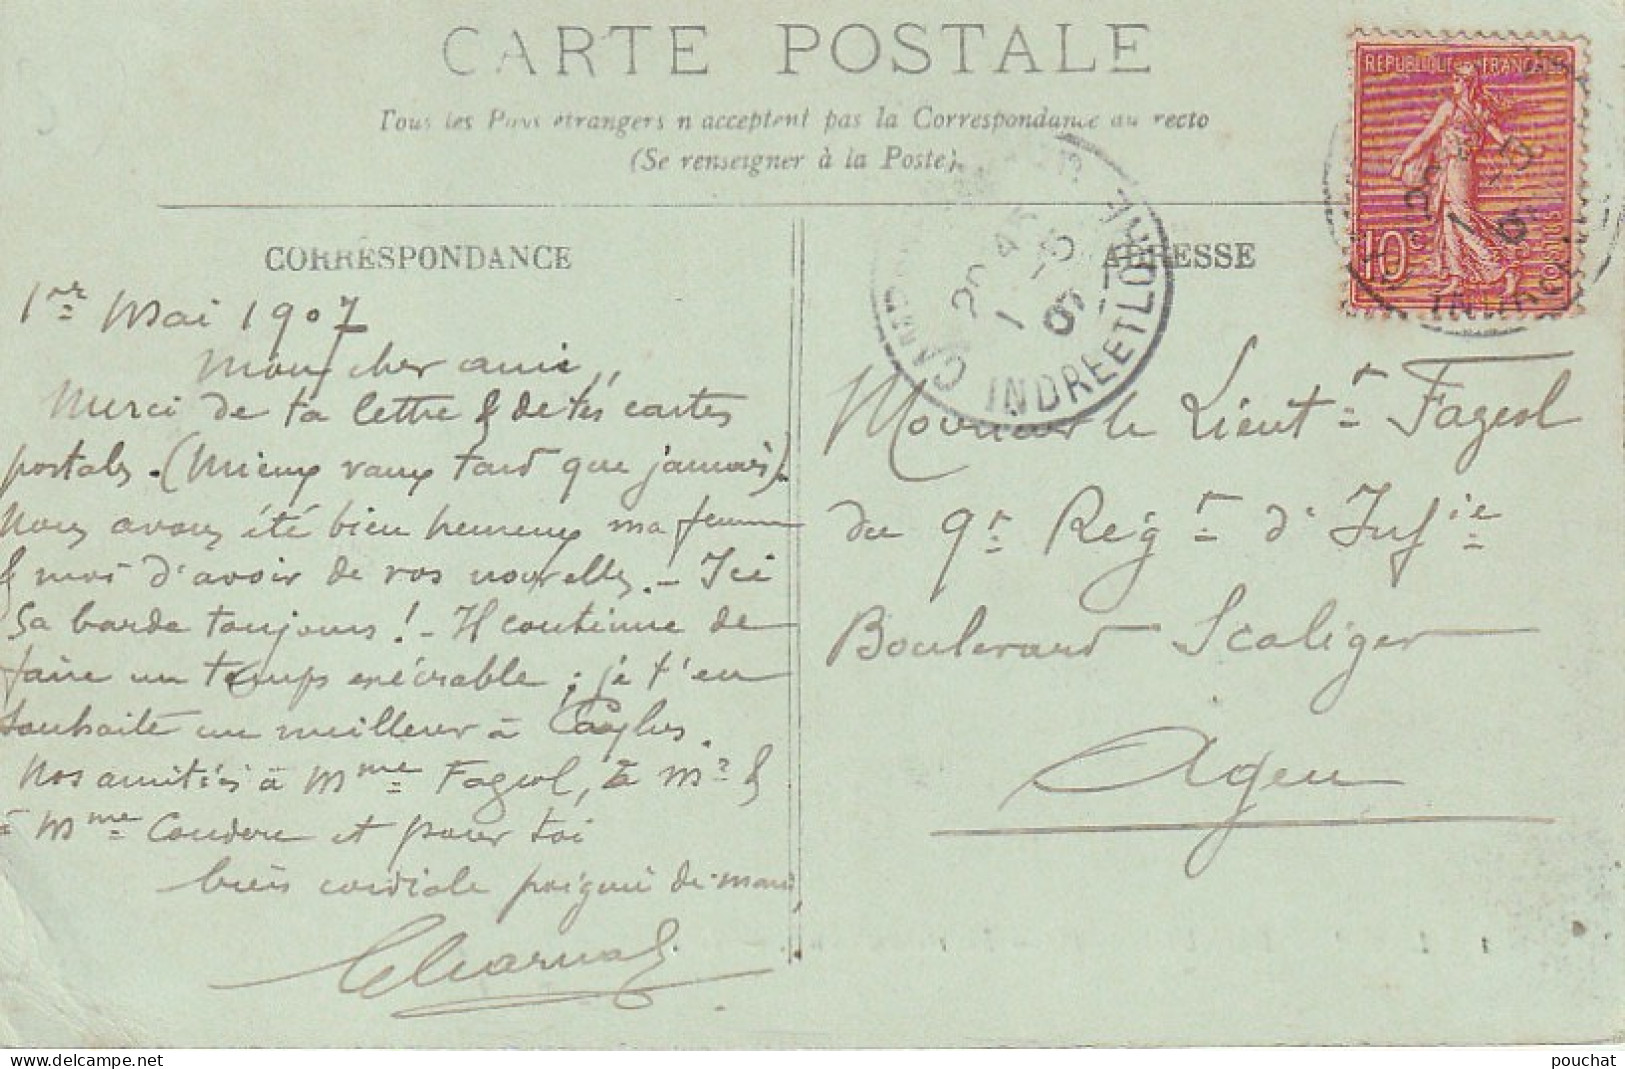 CARTE POSTALE
Tous les Pays étrangers n'acceptent pas la Correspondance au recto
(Se renseigner à la Poste).
CORRESPONDANCE
1er Mai 1907
Mon cher ami,
Merci de ta lettre & de tes cartes
postales. (Mieux vaux tard que jamais).
Nous avons été bien heureux ma femme
& moi d'avoir de vos nouvelles. - Ici
ça barde toujours ! - Il continue de
faire un temps exécrable ; je t'en
souhaite un meilleur à Caylus.
Nos amitiés à Mme Fageol, à Mr &
à Mme Couderc et pour toi
bien cordiale poignée de main,
ADRESSE
Monsieur le Lieut-t Fageol
du 9e Rég-t d'Inf-ie
Boulevard Scaliger
Agen
REPUBLIQUE FRANÇAISE
10c
POSTES
20 45
1 -5
07
INDRE ET LOIRE
pouchat
www.delcampe.net